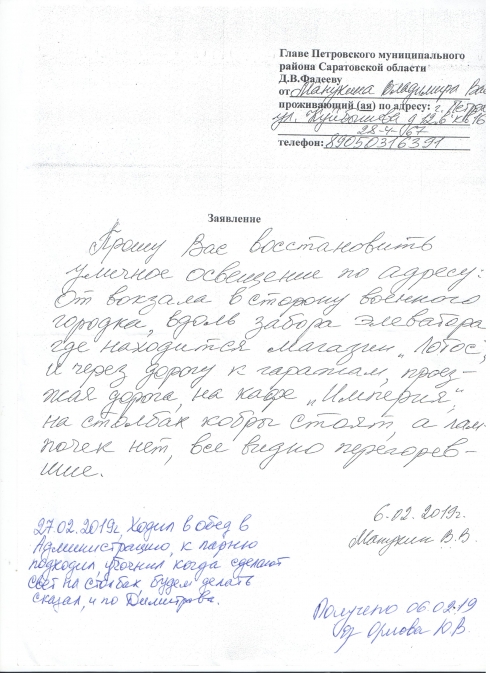 Главе Петровского муниципального
района Саратовской области
Д.В.Фадееву
от Манукина Владимира
проживающий (ая) по адресу: г. Петров
ул. Куйбышева д 12, в кв 16
28-4-67
телефон: 89050316391
Заявление
Прошу Вас восстановить
уличное освещение по адресу:
От вокзала в сторону военного
городка, вдоль забора элеватора
где находится магазин „Лотос",
и через дорогу к гаражам, проез-
жая дорога, на кафе „Империя",
на столбах кобры стоят, а лам-
почек нет, все видно перегорев-
шие.
6.02.2019г.
Манукин В.В.
27.02.2019г, Ходил в обед в
Администрацию, к парню
подходил, уточнил когда сделают
свет на столбах будем делать
сказал, и по Димитрова.
Получено 06.02.19
Орлова Ю.В.